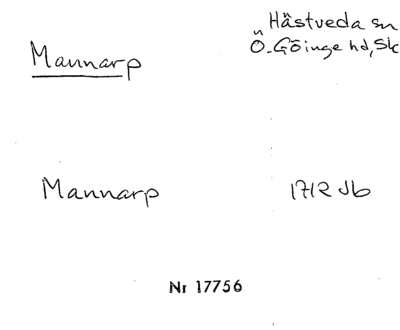 Mannarp
Hästveda sn
Ö. Göinge hd, Sk
Mannarp
1712 Jb
Nr 17756